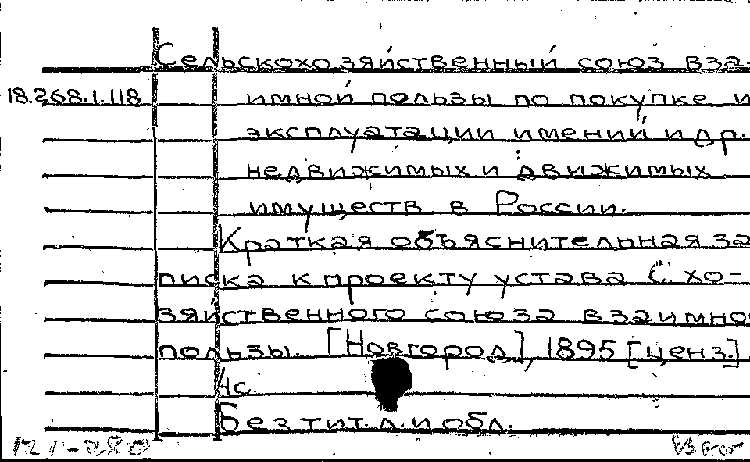 Сельскохозяйственный союз вза-
18.268.1.118 имной пользы по покупке и
эксплуатации имений и др.
недвижимых и движимых
имуществ в России.
Краткая объяснительная за
писка к проекту устава С.хо-
зяйственного союза взаимно
пользы. [Новгород], 1895 [ценз.]
4с.
Без тит.л. и обл.